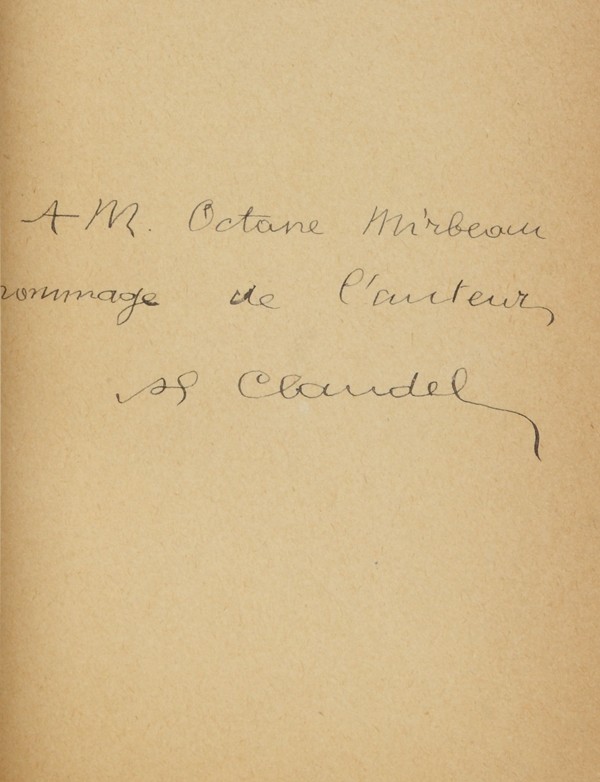 A M. Octave Mirbeau
hommage de l'auteur,
Claudel